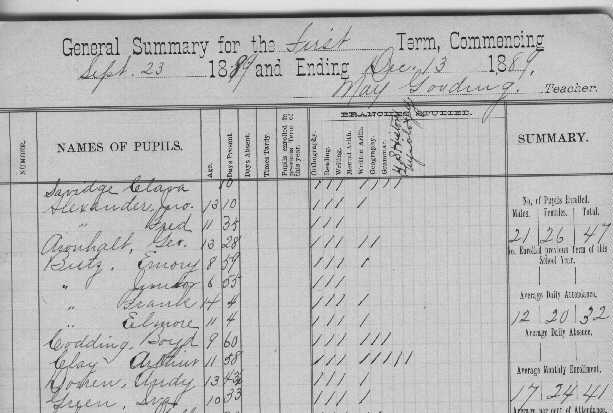 General Summary for the First Term, Commencing
Sept. 23 1889 and Ending Dec. 13 1889.
May Gooding. Teacher.
BRANCHES STUDIED.
NUMBER.
NAMES OF PUPILS.
Age.
Days Present.
Days Absent.
Times Tardy.
Pupils enrolled in previous Term of this year.
Orthography.
Reading.
Writing.
Mental Arith.
Written Arith.
Geography.
Grammar.
U.S. History
Physiology
SUMMARY.
Savidge Clara 10
Alexander, Jno. 13 10
" Fred 11 38
Aronhalt, Geo. 13 28
Butz, Emory 8 59
" 6 55
" Frank 14 4
" Elmore 11 4
Codding, Boyd 9 60
Clay Arthur 11 58
Andy 13
Green, 10 33
No. of Pupils Enrolled.
Males. Females. Total.
21 26 47
No. Enrolled previous Term of this School Year.
Average Daily Attendance.
12 20 32
Average Daily Absence.
Average Monthly Enrollment.
17 24 41
Average per cent of Attendance.